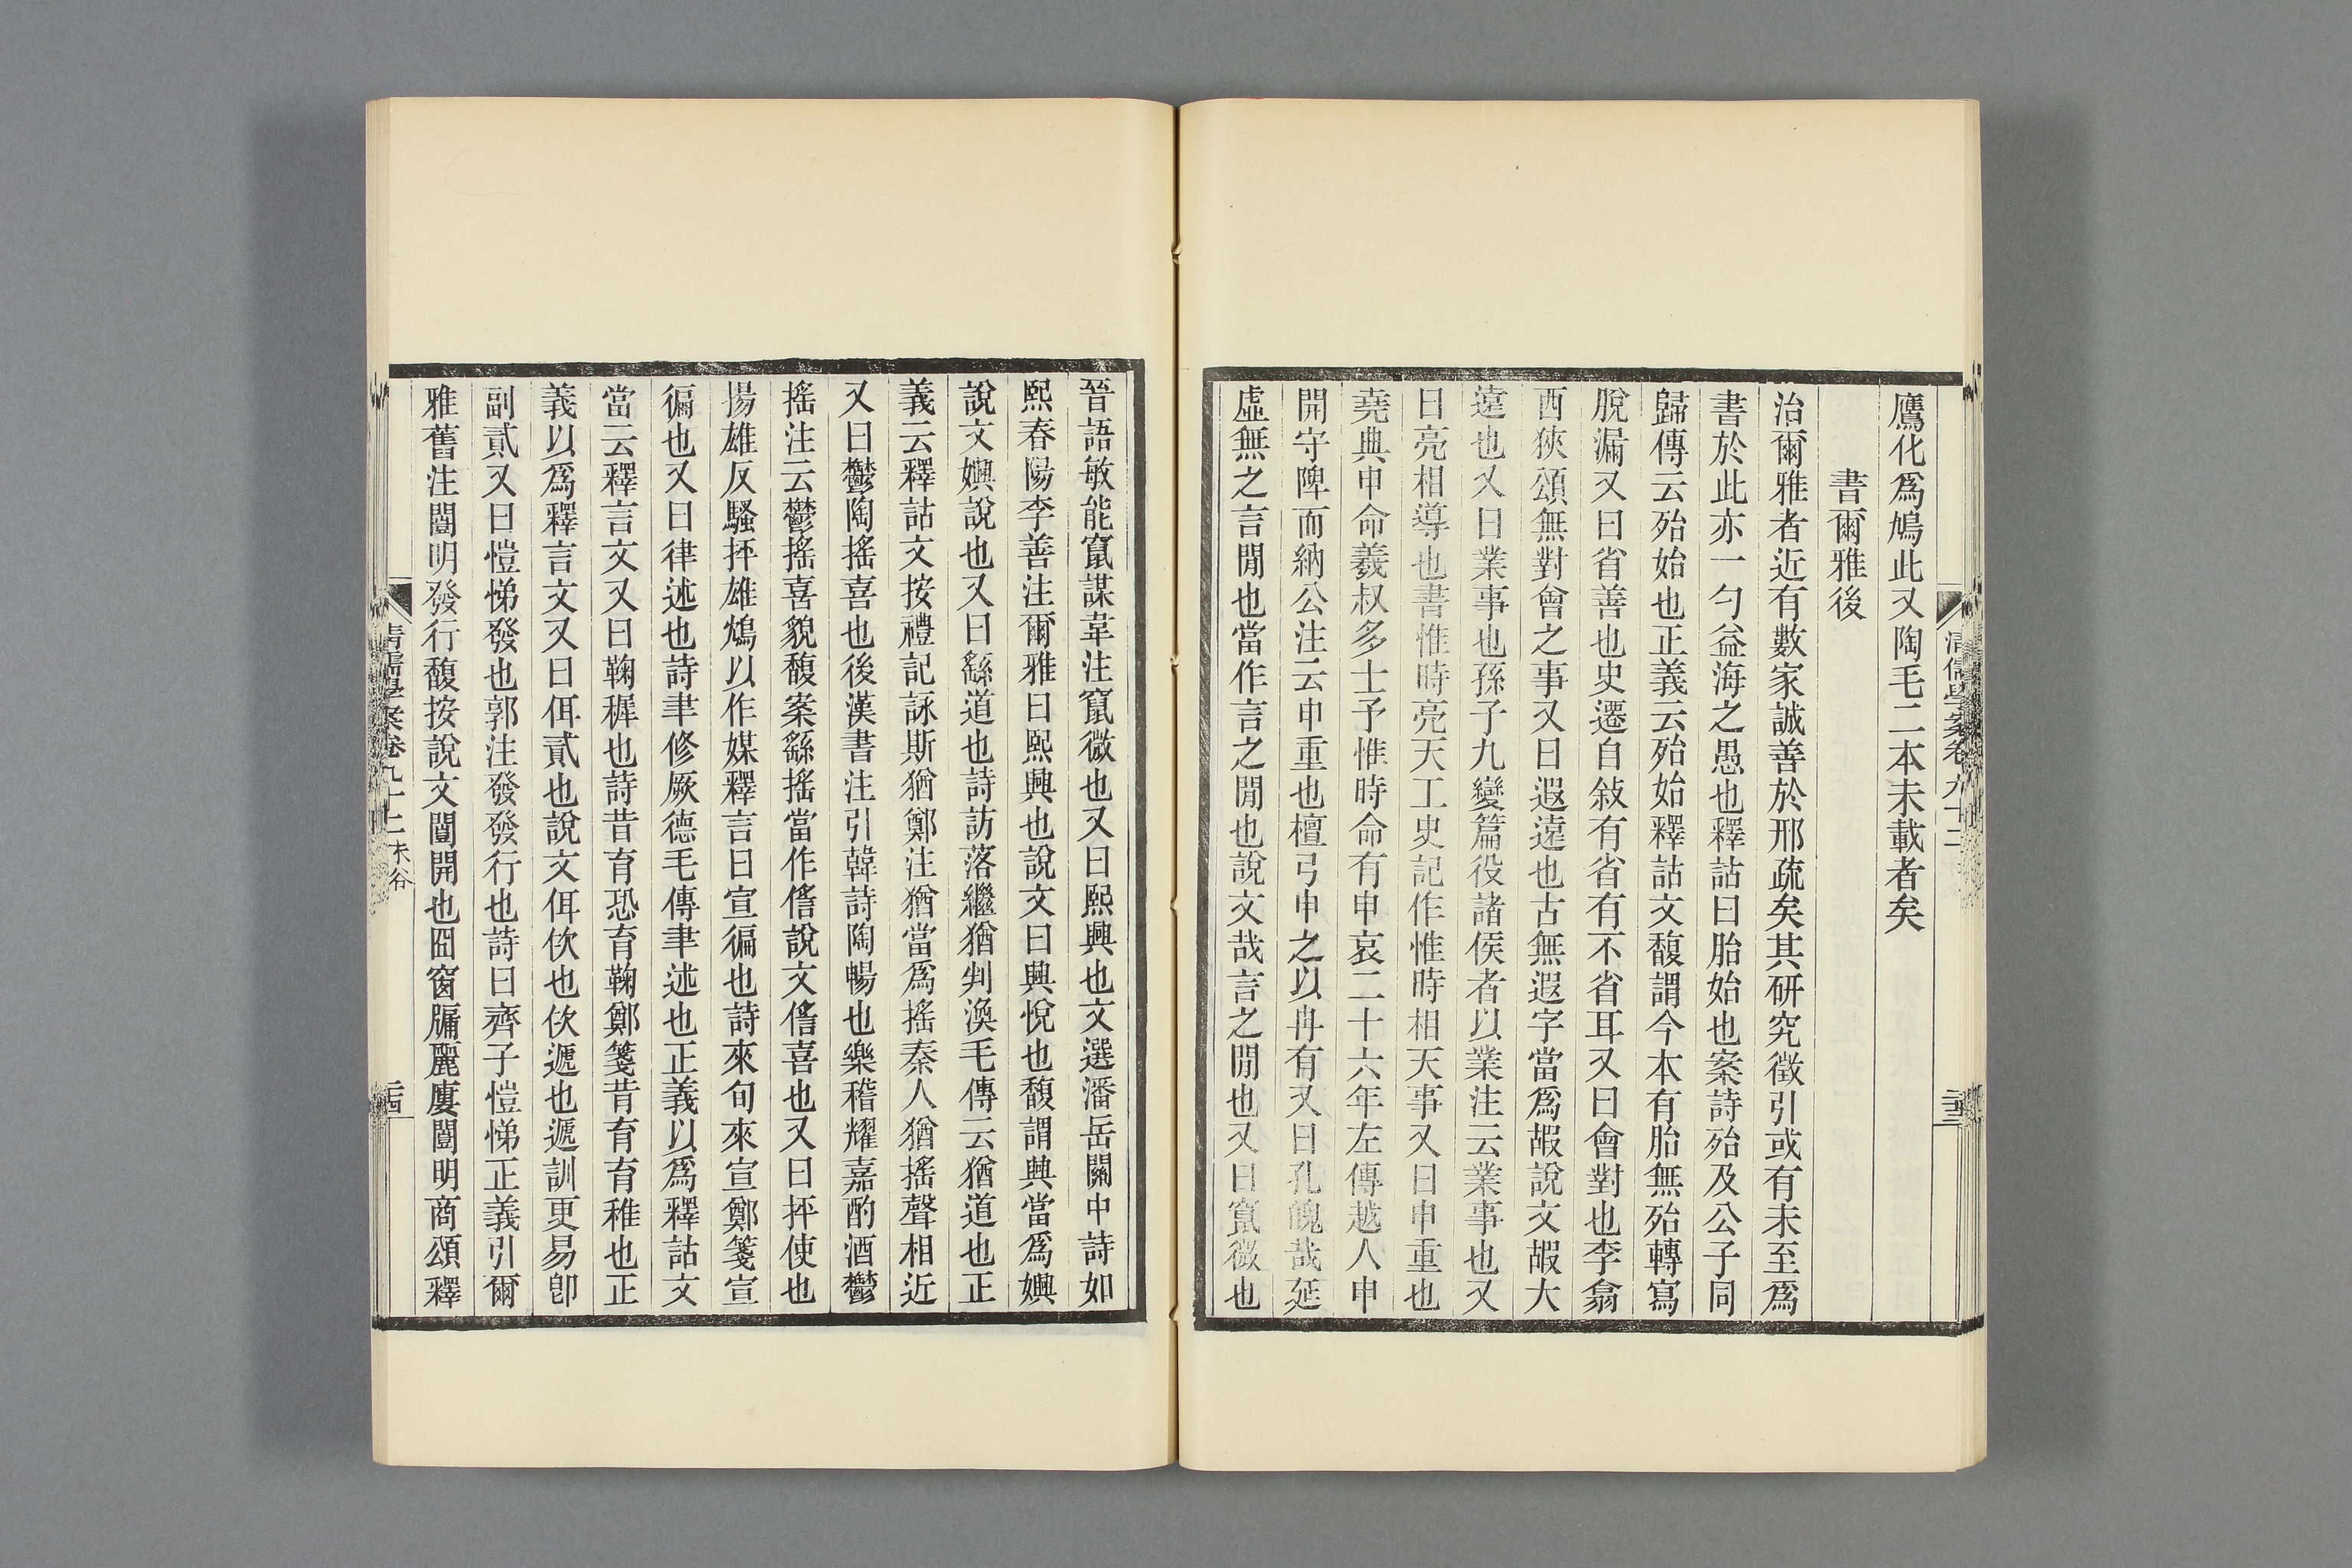 鷹化爲鳩此又陶毛二本未載者矣
書爾雅後
治爾雅者近有數家誠善於邢疏矣其硏究徵引或有未至爲
書於此亦一勺益海之愚也釋詁曰胎始也案詩殆及公子同
歸傳云殆始也正義云殆始釋詁文馥謂今本有胎無殆轉寫
脫漏又曰省善也史遷自敍有省有不省耳又曰會對也李翕
西狹頌無對會之事又曰遐遠也古無遐字當爲嘏說文嘏大
遠也又曰業事也孫子九變篇役諸侯者以業注云業事也又
曰亮相導也書惟時亮天工史記作惟時相天事又曰申重也
堯典申命羲叔多士予惟時命有申哀二十六年左傳越人申
開守陴而納公注云申重也檀弓申之以冉有又曰孔魄哉延
虛無之言閒也當作言之閒也說文哉言之閒也又曰竄微也
晉語敏能竄謀韋注竄微也又曰熙興也文選潘岳關中詩如
熙春陽李善注爾雅曰熙興也說文曰興悅也馥謂興當爲嬹
說文嬹說也又曰繇道也詩訪落繼猶判渙毛傳云猶道也正
義云釋詁文按禮記詠斯猶鄭注猶當爲搖秦人猶搖聲相近
又曰鬱陶搖喜也後漢書注引韓詩陶暢也樂稽耀嘉酌酒鬱
搖注云鬱搖喜貌馥案繇搖當作㒔說文㒔喜也又曰抨使也
揚雄反騷抨雄鴆以作媒釋言曰宣徧也詩來旬來宣鄭箋宣
徧也又曰律述也詩聿修厥德毛傳聿述也正義以爲釋詁文
當云釋言文又曰鞠稺也詩昔育恐育鞠鄭箋昔育育稚也正
義以爲釋言文又曰佴貳也說文佴佽也佽遞也遞訓更易卽
副貳又曰愷悌發也郭注發發行也詩曰齊子愷悌正義引爾
雅舊注闓明發行馥按說文闓開也囧窗牖麗廔闓明商頌釋
清儒學案卷九十二
二十三
清儒學案卷九十二 未谷
二十四